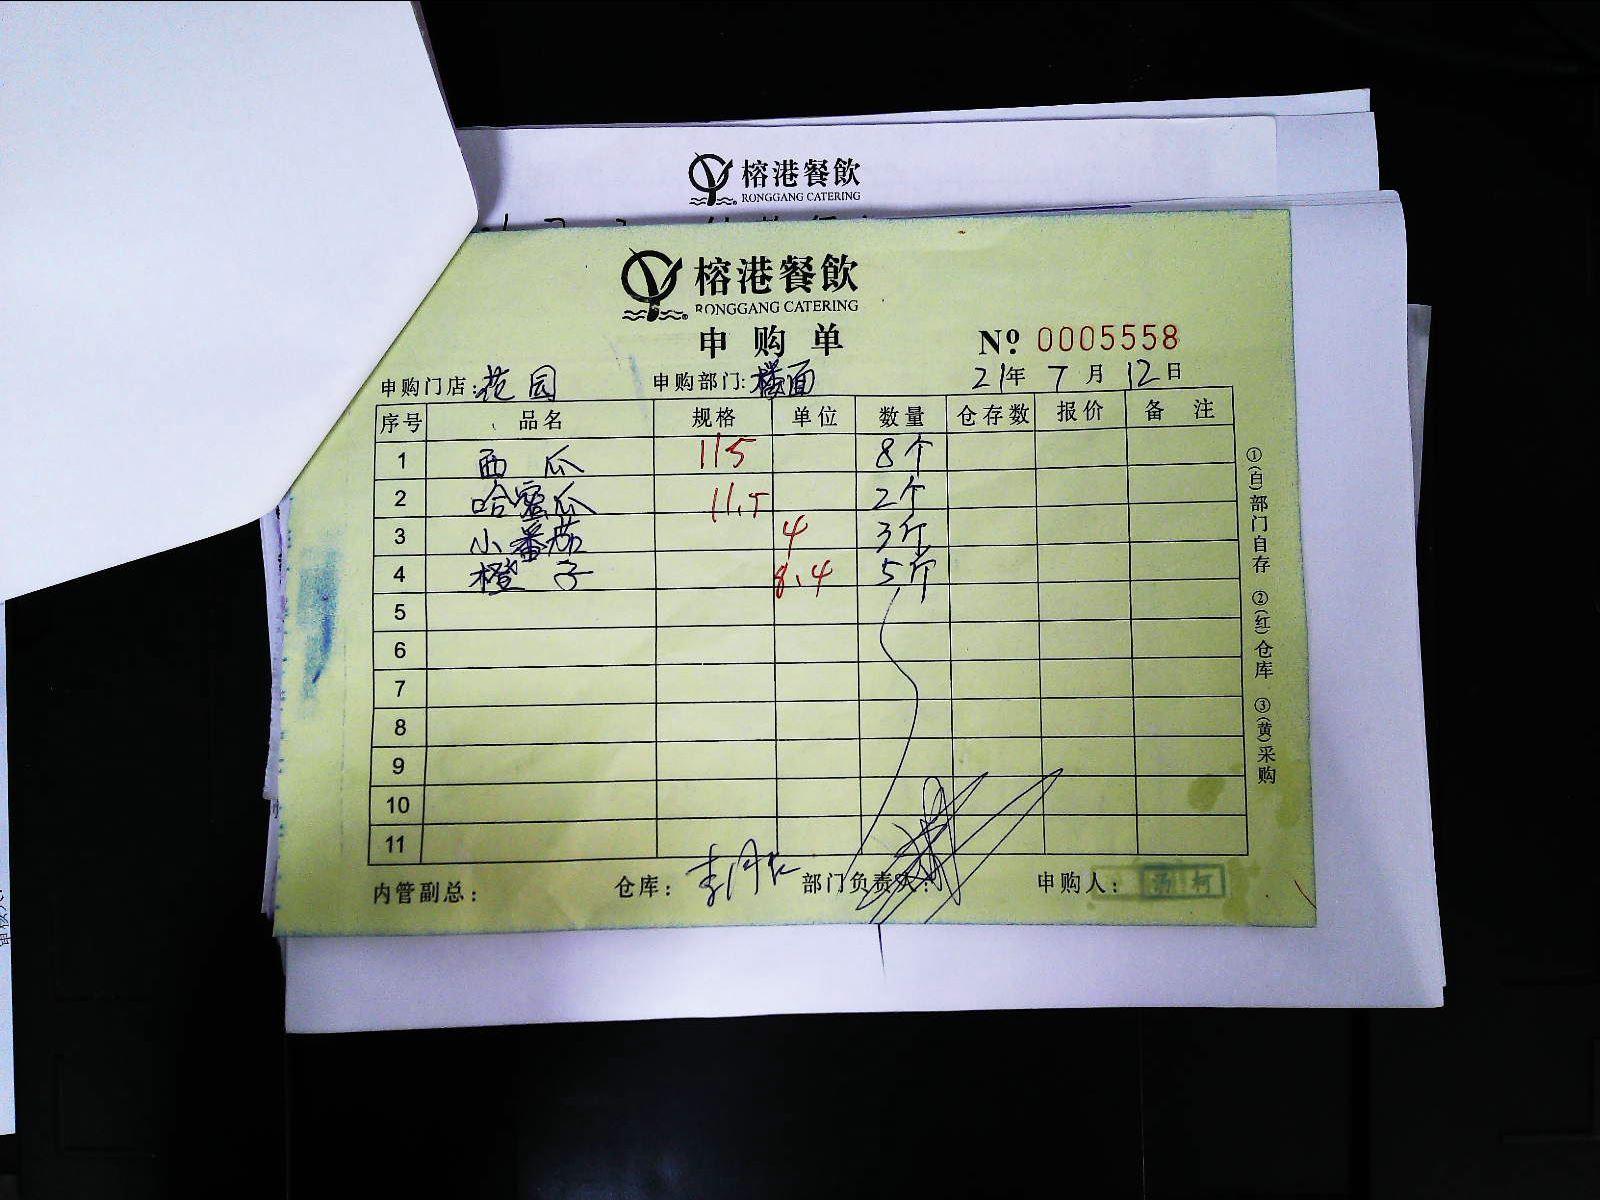 榕港餐飲
RONGGANG CATERING
榕港餐飲
RONGGANG CATERING
申购单
Nº 0005558
申购门店:花园 申购部门:楼面 21年 7月 12日
序号 品名 规格 单位 数量 仓存数 报价 备注
1 西瓜 115 8个
2 哈密瓜 11.5 2个
3 小番茄 4 3斤
4 橙子 8.4 5斤
5
6
7
8
9
10
11
内管副总: 仓库: 部门负责人: 申购人:
①(白)部门自存 ②(红)仓库 ③(黄)采购